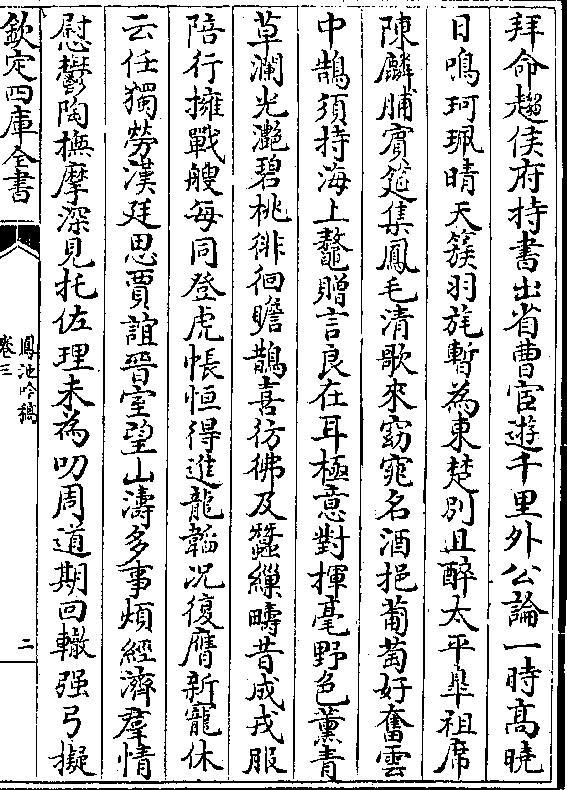 拜命趨侯府持書出省曹宦遊千里外公論一時高曉
日鳴珂珮晴天簇羽旄暫為東楚別且醉太平皐祖席
陳麟脯賓筵集鳳毛清歌來窈窕名酒挹葡萄好奮雲
中鵠須持海上鼇贈言良在耳極意對揮毫野色薰青
草瀾光灔碧桃徘徊瞻鵲喜彷彿及蠶繅疇昔成戎服
陪行擁戰艘每同登虎帳恒得進龍韜况復膺新寵休
云任獨勞漢廷思賈誼晉室望山濤多事煩經濟羣情
慰鬱陶撫摩深見托佐理未為叨周道期回轍强弓擬
欽定四庫全書
鳳池吟稿
卷三
二